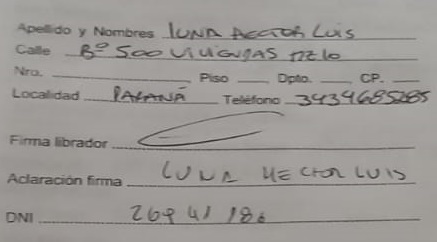 Apellido y Nombres LUNA HECTOR LUIS
Calle Bº 500 VIVIENDAS
Nro. Piso Dpto. CP.
Localidad PARANÁ Teléfono 3434685285
Firma librador
Aclaración firma LUNA HECTOR LUIS
DNI 26941186